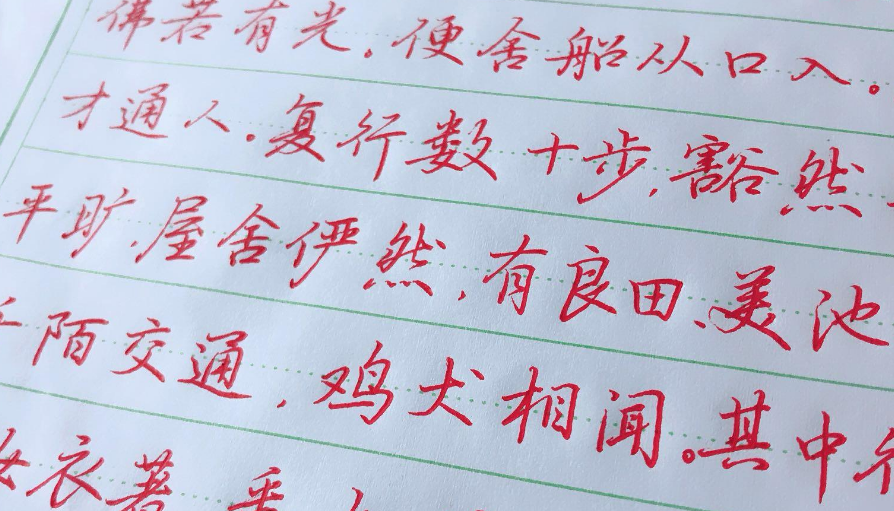 佛若有光,便舍船从口入。
才通人.复行数十步,豁然
平旷,屋舍俨然,有良田、美池
陌交通,鸡犬相闻。其中
衣著